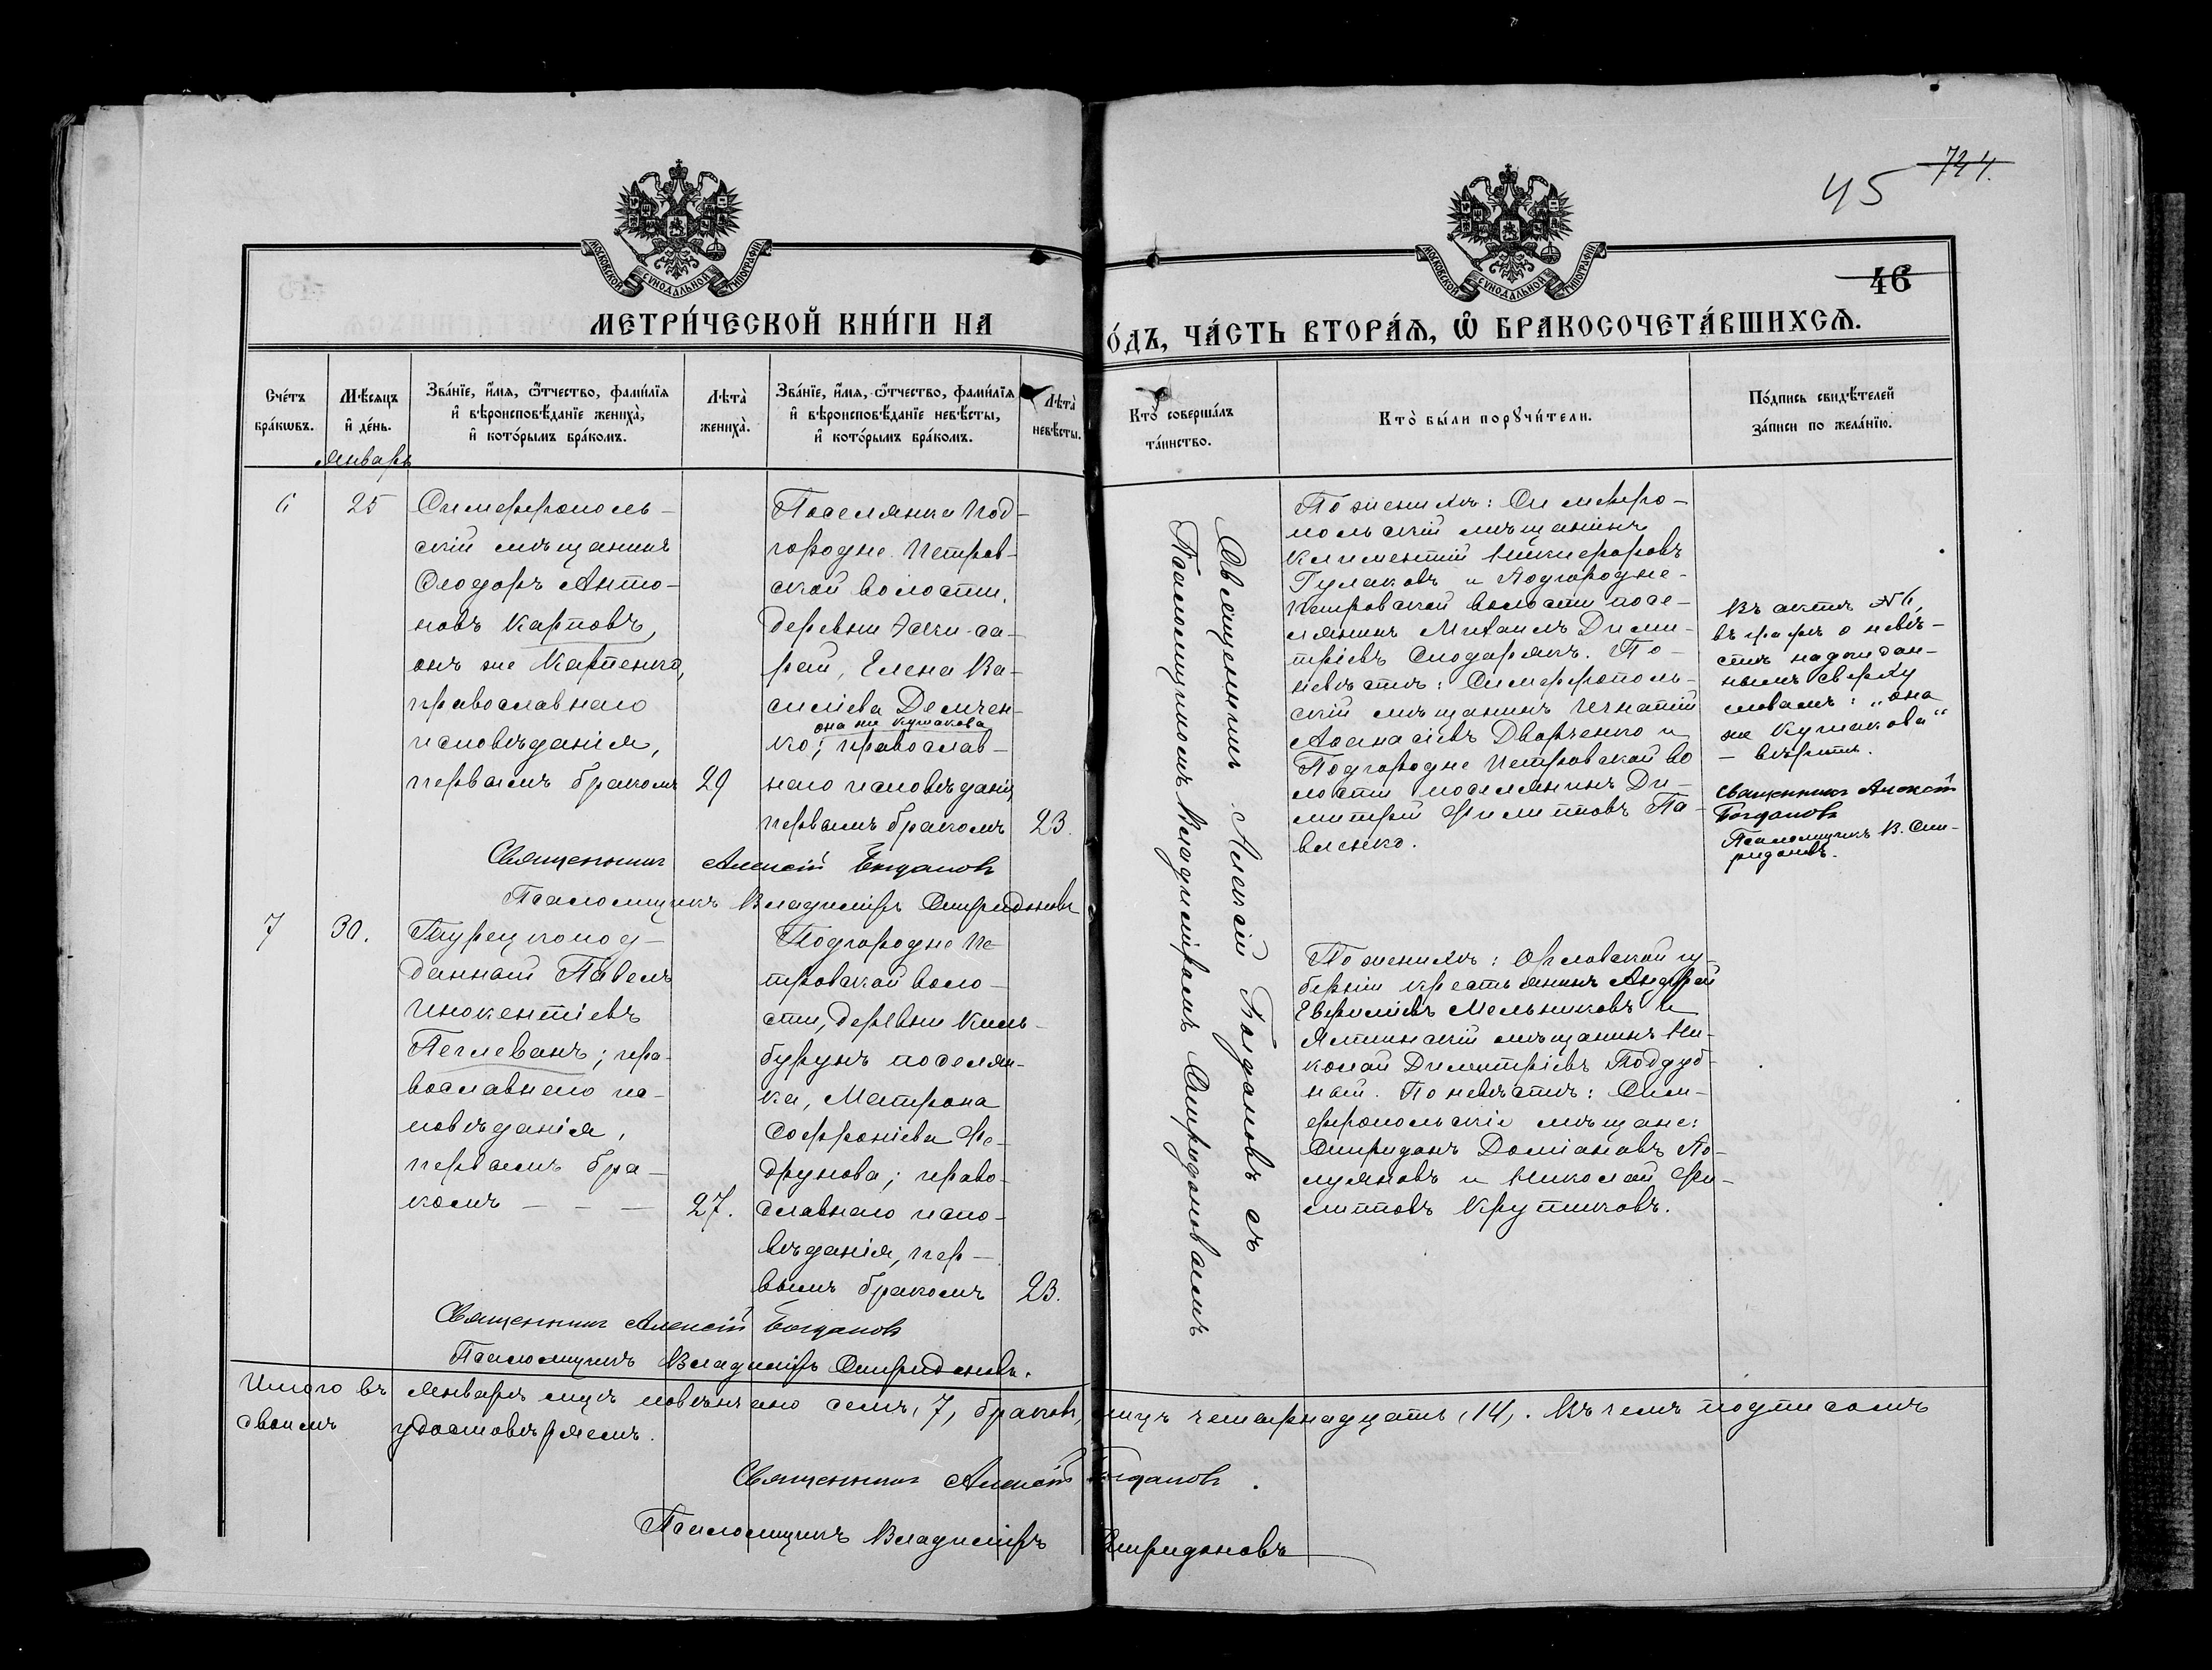 45 744.
46
МОСКОВСКОЙ СѴНОДАЛЬНОЙ ТИПОГРАФІИ
МОСКОВСКОЙ СѴНОДАЛЬНОЙ ТИПОГРАФІИ
МЕТРИ́ЧЕСКОЙ КНИ́ГИ НА
О́ДЪ, ЧА́СТЬ ВТОРА́Ѧ, Ѽ БРАКОСОЧЕТА́ВШИХСѦ.
Сче́тъ
бра́кѡвъ.
Мѣ́сяцъ
и҆ де́нь.
Январь
Зва́нїе, и҆́мя, ѻ҆́тчество, фами́лїя
и҆ вѣроисповѣ́данїе жениха̀,
и҆ кото́рымъ бра́комъ.
Лѣта̀
жениха̀.
Зва́нїе, и҆́мя, ѻ҆́тчество, фами́лїя
и҆ вѣроисповѣ́данїе невѣ́сты,
и҆ кото́рымъ бра́комъ.
Лѣта̀
невѣ́сты.
Кто̀ соверша́лъ
та́инство.
Кто̀ бы́ли порꙋчи́тели.
По́дпись свидѣ́телей
за́писи по жела́нїю.
6
25
Симферрополь-
скій мѣщанинъ
Ѳеодоръ Анто-
новъ Карповъ,
онъ же Карпенко,
православнаго
исповѣданія,
первымъ бракомъ
29
Поселянка Под-
городне-Петров-
ской волости,
деревни Эски-са-
рай, Елена Ва-
силіева Демчен-
она же Кушакова
ко; православ-
наго исповѣданія,
первымъ бракомъ
23.
Священникъ Алексій Богдановъ
Псаломщикъ Владиміръ Спиридоновъ
Священникъ Алексій Богдановъ съ
Псаломщикомъ Владиміромъ Спиридоновымъ
По женихѣ: Симферо-
польскій мѣщанинъ
Климентій Никифоровъ
Гулаковъ и Подгородне-
Петровской волости посе-
лянинъ Михаилъ Дими-
тріевъ Слюдарякъ. По
невѣстѣ: Симферрополь-
скій мѣщанинъ Игнатій
Аѳанасіевъ Дворченко и
Подгородне Петровской во
лости поселянинъ Ди-
митрій Филипповъ Па-
вленко.
Въ актѣ №6,
въ графѣ о невѣ-
стѣ надписан-
нымъ сверху
словамъ: „она
же Кушакова“
— вѣрить.
Священникъ Алексій
Богдановъ
Псаломщикъ В. Спи-
ридоновъ.
7
30.
Турецкопод-
данный Павелъ
Инокентіевъ
Пеглеванъ; пра-
вославнаго ис-
повѣданія,
первымъ бра-
комъ — — —
27.
Подгородне Пе-
тровской воло-
сти, деревни Киль-
бурунъ поселян-
ка, Матрона
Софроніева Фе-
друнова; право-
славнаго испо-
вѣданія, пер-
вымъ бракомъ
23.
По женихѣ: Орловской гу-
берніи крестьянинъ Андрей
Евфиміевъ Мельниковъ и
Ялтинскій мѣщанинъ Ни-
колай Димитріевъ Поддуб-
ный. По невѣстѣ: Сим-
ферропольскіе мѣщане:
Спиридонъ Доміановъ По-
луяновъ и Николай Фи-
липповъ Крутиковъ.
Священникъ Алексій Богдановъ
Псаломщикъ Владиміръ Спиридоновъ.
Итого въ Январѣ мцѣ повѣнчано семь, 7, браковъ, лицъ четырнадцать, 14,. Въ чемъ подписомъ
своимъ удостовѣряемъ.
Священникъ Алексій Богдановъ.
Псаломщикъ Владиміръ Спиридоновъ